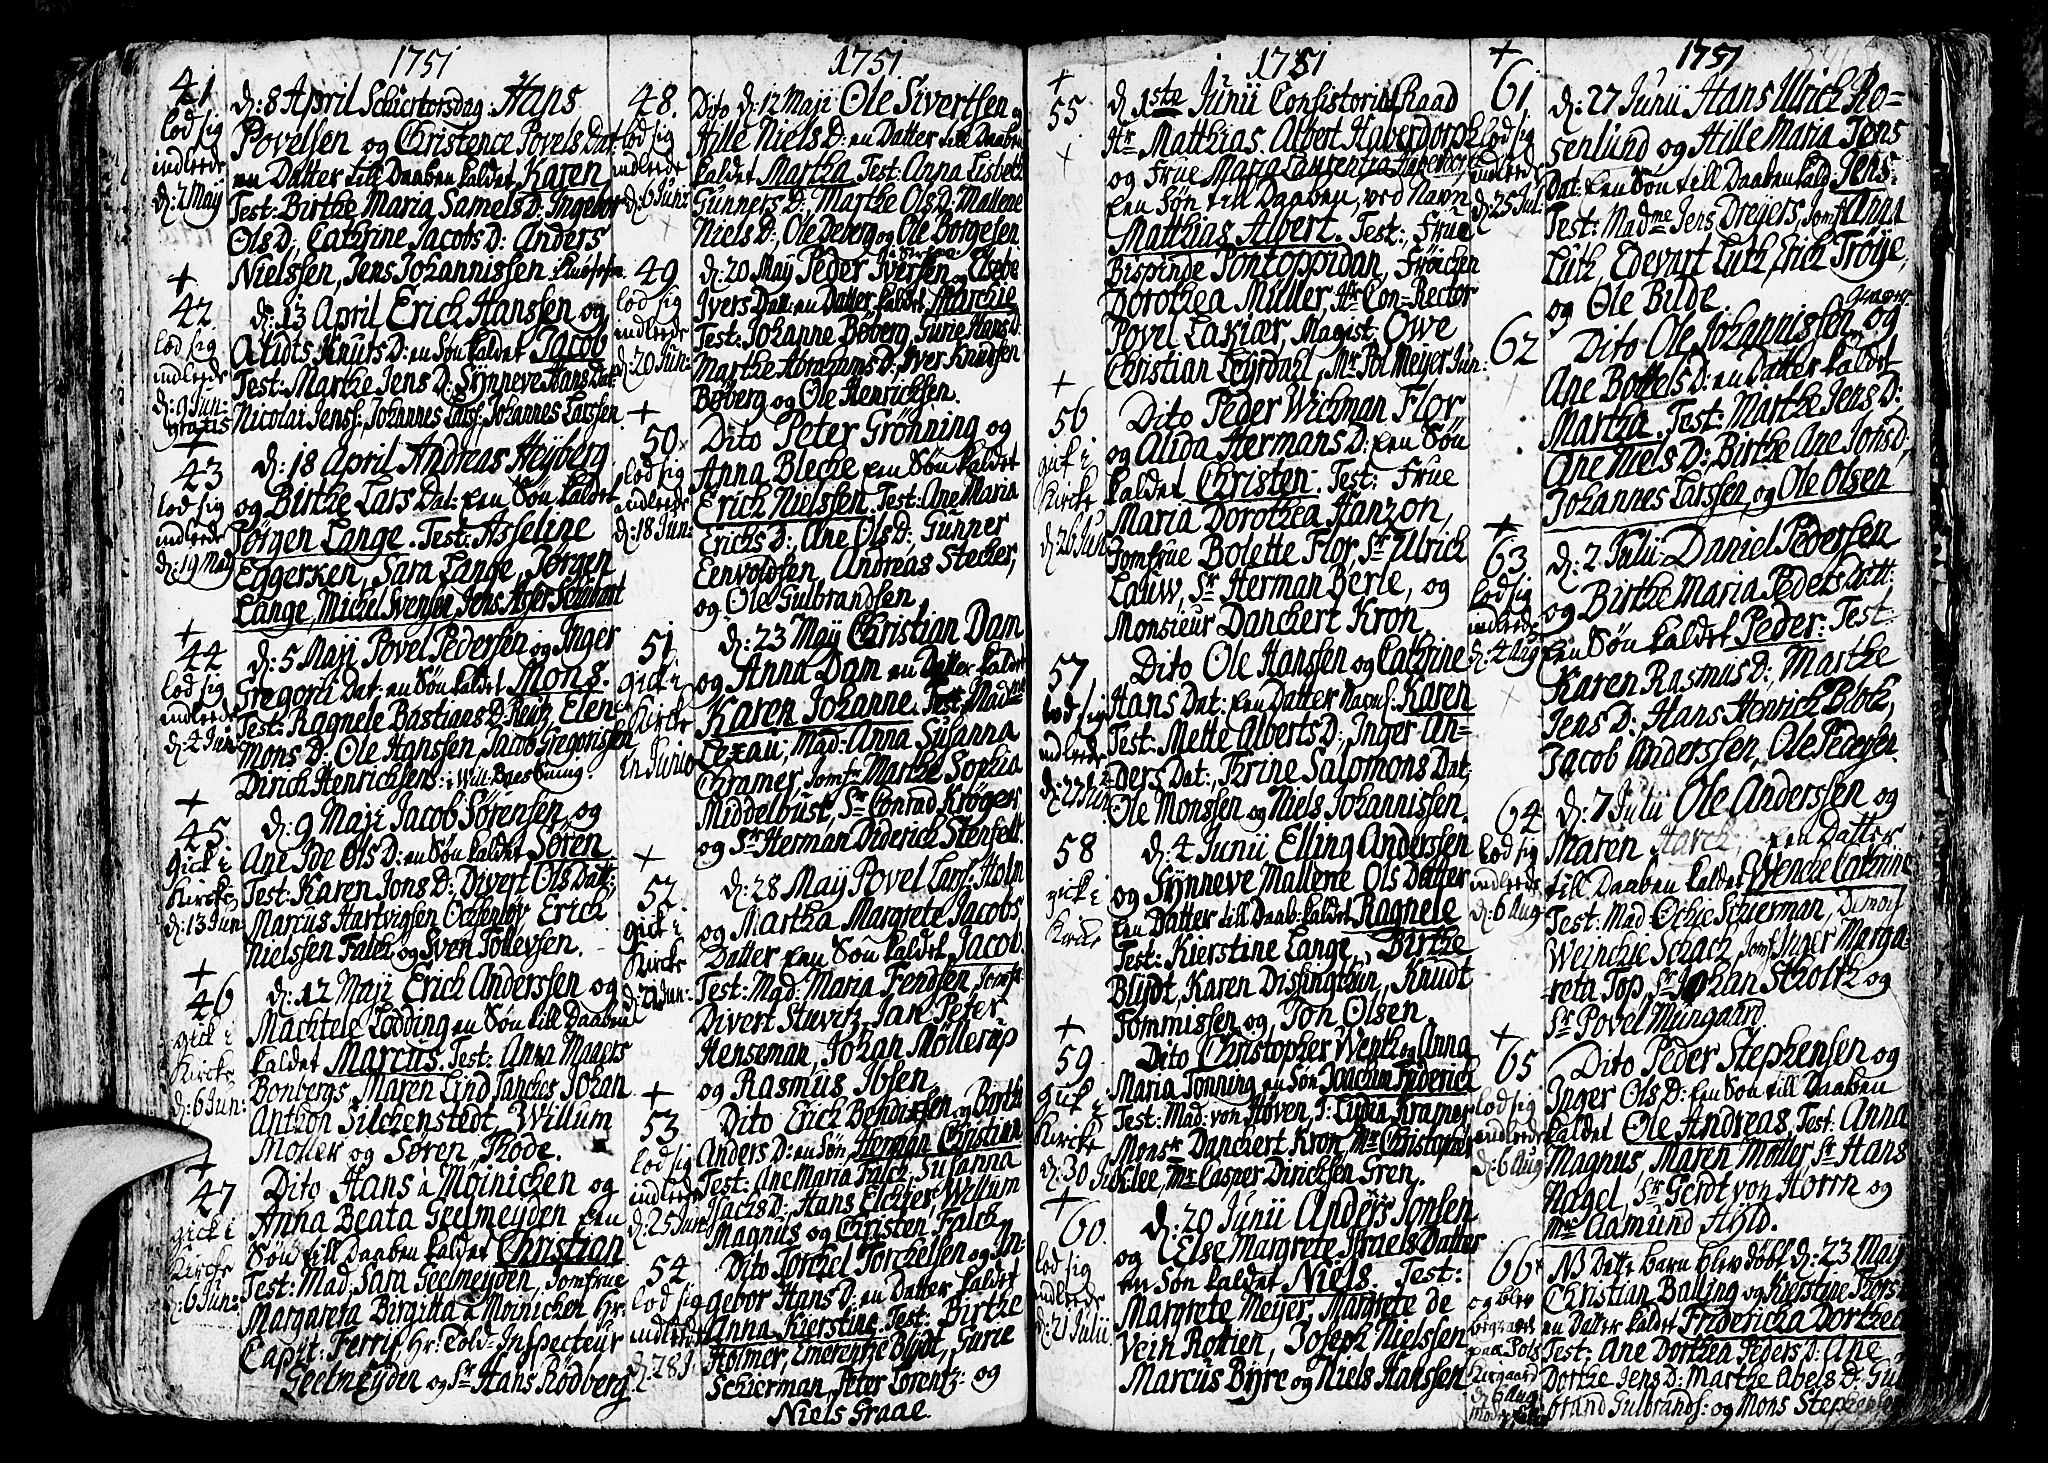 1751
41
lod sig
indleede
d: 2 May
d: 8 April Schiertorsdag: Hans
Povelsen og Christence Povels Dat.
en Datter till Daaben kaldet Karen
Test: Birthe Maria Samels D: Ingebor
Ols D, Cathrine Jacobs D: Anders
Nielssen, Jens Johannissen
+
42
lod sig
indleede
d: 9 Jun:
gratis
d: 13 April Erich Hanssen og
Alidts Knuts D: en Søn kaldet Jacob
Test: Marthe Jens D: Synneve Hans Dat
Nicolai Jenss: Johannes Larss: Johannes Larssen
+
43
lod sig
indleede
d: 19 Maj
d: 18 April Andreas Heyberg
og Birthe Lars Dat: een Søn kaldet
Jørgen Lange. Test: Asseline
Eggerken, Sara Lange, Jørgen
Lange, Michel Svensen Jens Asser Schubart
+
44
lod sig
indleede
d: 4 Jun:
d: 5 Maji Povel Pedersen og Inger
Gregorii Dat: en Søn kaldet Mons.
Test: Ragnele Bastians D: Reutz, Elen
Mons D: Ole Hanssen, Jacob Gregorissen
Dirich Henrichsens: i Will: Baes
+
45.
gick i
Kircke
d: 13 Jun:
d: 9 Maji Jacob Sørensen, og
Ane Ide Ols D: en Søn kaldet Søren
Test: Karen Jons D: Divert Ols Dat;
Marcus Hartvigsen Ochenloy Erich
Nielssen Falck og Sven Tollevsen.
+
46
gick i
Kircke
d: 6 Jun:
d: 12 Maji Erich Anderssen og
Machtele Lodding en Søn till Daaben
kaldet Marcus. Test: Anna Magers
Bonbergs Maren Lind Tanches Johan
Anthon Silchenstedt, Willum
Møller og Søren Rode.
+
47
gick i
Kircke
d: 6 Jun:
Dito Hans à Møinichen og
Anna Beata Geelmeyden een
Søn till Daaben kaldet Christian
Test: Mad: Sara Geelmeyden, Jomfrue
Margareta Birgitta à Møinichen Hr:
Capit: Ferry, Hr: Told-Inspecteur
Geelmeyden og Sr Hans Rødberg
1751.
48.
lod sig
indleede
d: 6 Jun:
Dito d: 12 Maji Ole Sivertsen og
Hille Niels D: en Datter till Daaben
kaldet Martha Test: Anna Lisbeth
Gunners D: Marthe Ols D: Mallene
Niels D:, Ole Deberg og Ole Borgesen
49
lod sig
indleede
d: 20 Jun:
d: 20 May Peder Iversen Elsebe
Ivers Dat: en Datter kaldet Marchie
Test: Johanne Boberg, Gurie Hans D:
Marthe Abrahams D: Iver Knudsen
Boberg og Ole Henrichsen.
+
50
lod sig
indleede
d: 18 Jun:
Dito Peter Grønning og
Anna Blecke een Søn kaldet
Erich Nielssen Test: Ane Maria
Erichs D: Ane Ols D: Gunner
Eenvoldsen, Andreas Stecker,
og Ole Gulbrandsen
51
gick i
Kircke
in Junio
d: 23 May Christian Dam
og Anna Dam en Datter kaldet
Karen Johanne. Test: Madme
Lexau, Mad: Anna Susanna
Chramer, Jomfr Marthe Sophia
Middelbust, Sr Conrad Krøger,
og Sr Herman Diderich Stenfelt
+
52.
gick i
Kircke
d: 21 Jun:
d: 28 May Povel Larss: Holm
og Martha Margrete Jacobs
Datter een Søn kaldet Jacob.
Test: Mad: Maria Fendsen Jomfr
Divert Stuvitz Jan Peter
Henseman, Johan Møllerup
og Rasmus Ibsen
+
53
lod sig
indleede
d: 25 Jun:
Dito Erich Bendixsen og Birthe
Anders D: en Søn Herman Christian
Test: Ane Maria Falck, Susanna
Isachs D: Hans Elchier, Willum
Magnus og Christen Falck
54
lod sig
indleede
d: 28 J
Dito Torckel Torckelsen og In-
gebor Hans D: en Datter kaldet
Anna Kierstine Test: Birthe
Holmer, Emerentze Blydt, Gurie
Schierman, Peter Lorentz: og
Niels Graae.
1751
+
55
d: 1ste Junii Consistorial Raad
Hr Matthias Albert Haberdorph
og Frue Maria Laurentza Haberdorph
een Søn till Daaben, ved Navn
Matthias Albert. Test: Frue
Bispinde Pontoppidan, Frøichen
Dorothea Müller, Hr Con-Rector
Povel Lakiær, Magist: Owe
Christian Leyrdahl, Mr Pol Meyer Jun:
+
56
gick i
Kircke
d: 26 Jun
Dito Peder Wichman Flor
og Alida Hermans D: een Søn
kaldet Christen. Test: Frue
Maria Dorothea Hanzon,
Jomfrue Bolette Flor, Sr Ulrich
Lauw, Sr Herman Berle, og
Monsieur Danckert Kron
57
lod sig
indleede
d: 22 Jun:
Dito Ole Hanssen og Cathrine
Hans Dat: een Datter Nafnl: Karen
Test: Mette Alberts D: Inger An-
ders Dat:, Trine Salomons Dat:
Ole Monssen og Niels Johannissen.
58
gick i
Kircke
d: 4 Junii Elling Anderssen
og Synneve Mallene Ols Datter
een Datter till Daab: kaldet Ragnele
Test: Kierstine Lange, Birthe
Blydt, Karen Dissingthun, Knudt
Tommissen og, Jon Olsen.
+
59
gick i
Kircke
d: 30 Jun
Dito Christopher Wentz og Anna
Maria Tonning en Søn Joachim Friderich
Test: Mad: von Høven, J: Lydia Kramer
Monsr Danckert Kron, Mr Christopher
lee, Mr Casper Dirichsen Gren.
+
60
lod sig
indleede
d: 21 Julii
d: 20 Junii Anders Jonsen
og Else Margrete Israels Datter
en Søn kaldet Niels. Test:
Margrete Meyer, Margrete de
Vein Rottien, Joseph Nielssen
Marcus Byre og Niels Hanssen
1751
+
61.
lod sig
indleede
d: 25 Jul.
d: 27 Junii Hans Ulrich Ro-
senlund og Hille Maria Jens
Dat: een Søn till Daaben kald Jens.
Test: Madme Jens Dreyers, Jomf: Anna
Luth, Edevart Luth, Erich Trøye,
og Ole Bilde
62
Dito Ole Johannissen og
Ane Bottels D: en Datter kaldet
Martha. Test: Marthe Jens D:
Ane Niels D: Birthe Ane Jons D:
Johannes Larssen, og Ole Olsen
+
63
lod sig
indleede
d: 4 Aug
d: 2 Julii Daniel Pedersen
og Birthe Maria Peders Datt:
een Søn kaldet Peder: Test:
Karen Rasmus D:, Marthe
Jens D: Hans Henrich Block,
Jacob Anderssen, Ole Pedersen.
64
lod sig
indleede
d: 6 Aug
d: 7 Julii Ole Anderssen og
Maren Harck, een Datter
till Daaben kaldet Wenche Cathrine
Test: Mad: Ochie Schierman, Demois
Weinche Schach, Jomf: Inger Marga-
reta Top, Sr Johan Scholtz og
Sr Povel Mungaard
+
65
lod sig
indleede
d: 6 Aug
Dito Peder Stephensen og
Inger Ols D: een Søn till Daaben
kaldet Ole Andreas. Test: Anna
Magnus, Maren Møller Sr Hans
Nagel, Sr Gerdt von Horrn og
Mr Aamund Hyld.
66
og blev
begravet
paa Pols
Kirgaard
d: 6 Aug
NB Dette barn blev døbt d: 23 May
Christian Balling og Kierstine Thors D
en Datter kaldet Fridericha Dorthea
Test: Ane Dorthea Peders D: Ane
Dorthe Jens D: Marthe Abels D: Gu
brand Gulbrands: og Mons Stephensen